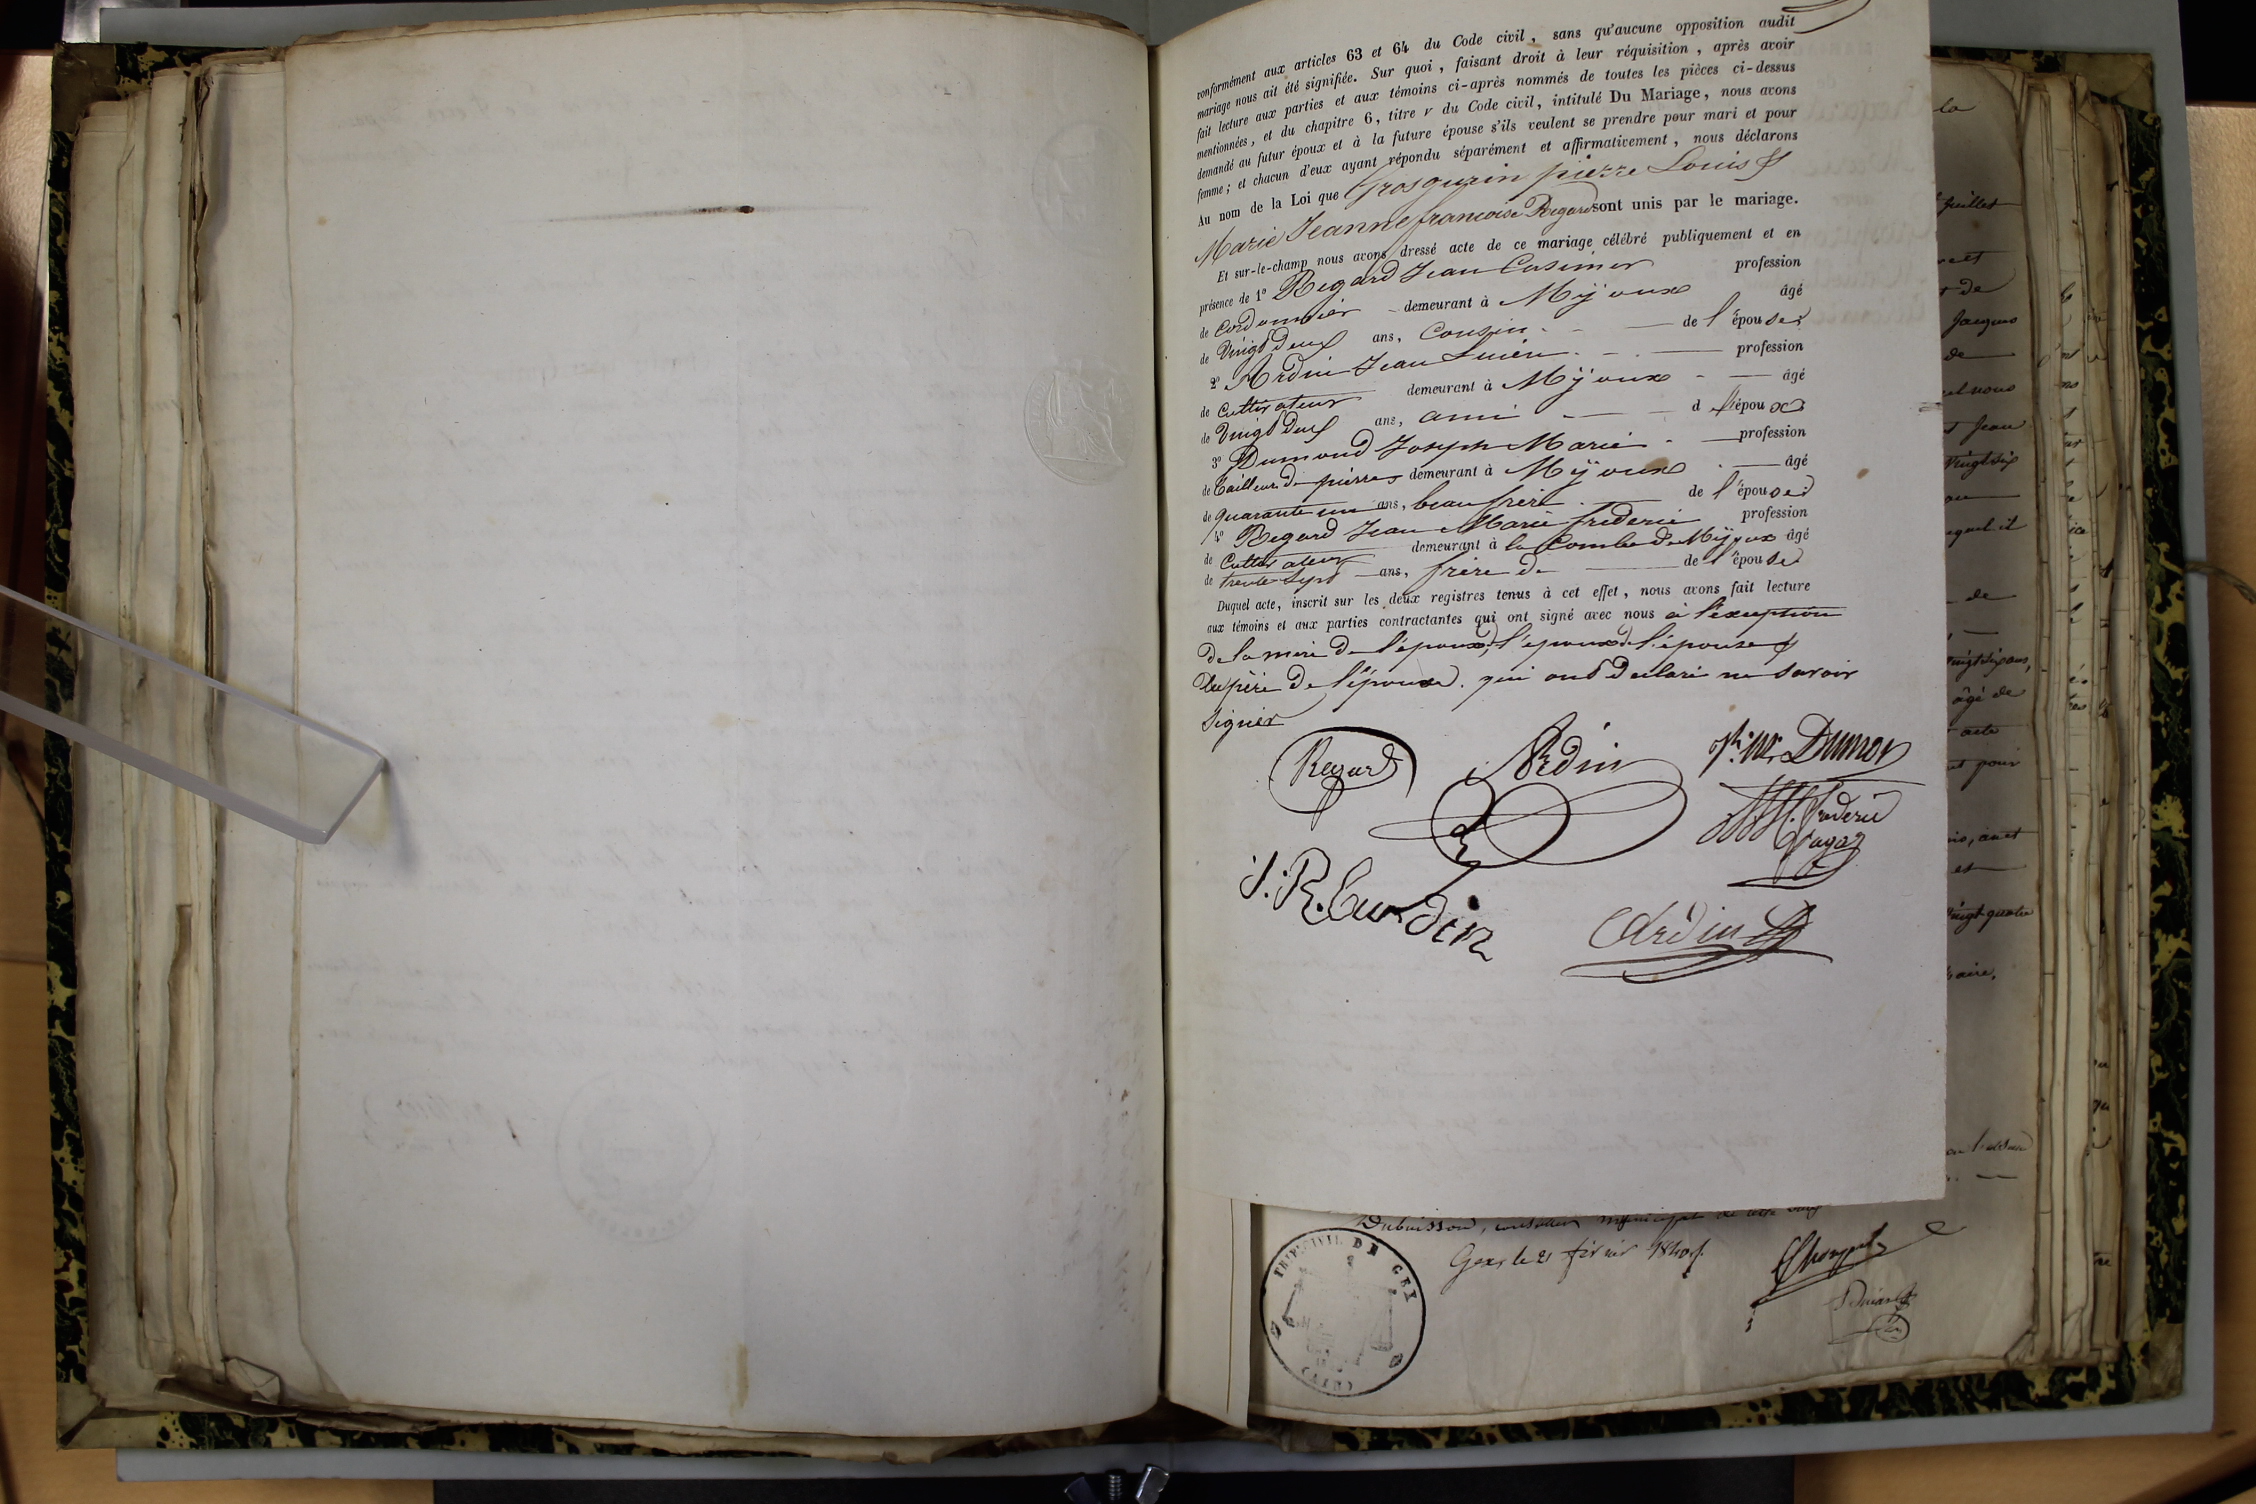 conformément aux articles 63 et 64 du Code civil, sans qu'aucune opposition audit
mariage nous ait été signifiée. Sur quoi, faisant droit à leur réquisition, après avoir
fait lecture aux parties et aux témoins ci-après nommés de toutes les pièces ci-dessus
mentionnées, et du chapitre 6, titre v du Code civil, intitulé Du Mariage, nous avons
demandé au futur époux et à la future épouse s'ils veulent se prendre pour mari et pour
femme; et chacun d'eux ayant répondu séparément et affirmativement, nous déclarons
Au nom de la Loi que Grosgurin pierre Louis &
Marie Jeanne francoise Regard sont unis par le mariage.
Et sur-le-champ nous avons dressé acte de ce mariage célébré publiquement et en
présence de 1° Regard Jean Casimir profession
de Cordonnier demeurant à Mijoux âgé
de Vingt deux ans, Cousin de l'épouse;
2° Ardin Jean Lucien profession
de Cultivateur demeurant à Mijoux âgé
de Vingt deux ans, ami d l'époux;
3° Dumond Joseph Marie profession
de tailleur de pierres demeurant à Mijoux âgé
de quarante un ans, beau frère de l'épouse;
4° Regard Jean Marie frederic profession
de Cultivateur demeurant à la Combe de Mijoux âgé
de trente sept ans, frère de de l'épouse
Duquel acte, inscrit sur les deux registres tenus à cet effet, nous avons fait lecture
aux témoins et aux parties contractantes qui ont signé avec nous à l'exception
De la mère de l'époux, l'époux de l'épouse &
du père de l'épouse. qui ont declaré ne savoir
signer
Regard Ardin Jh. M. Dumond
frederic
Ardin
Dubuisson, conseiller municipal de cette
Gex, le 21 février
TRIB. CIVIL DE GEX
la
juillet
et
de
Jacques
de
nous
Jean
vingt six
il
de
vingt six ans,
âgé de
acte
pour
et
vingt quatre